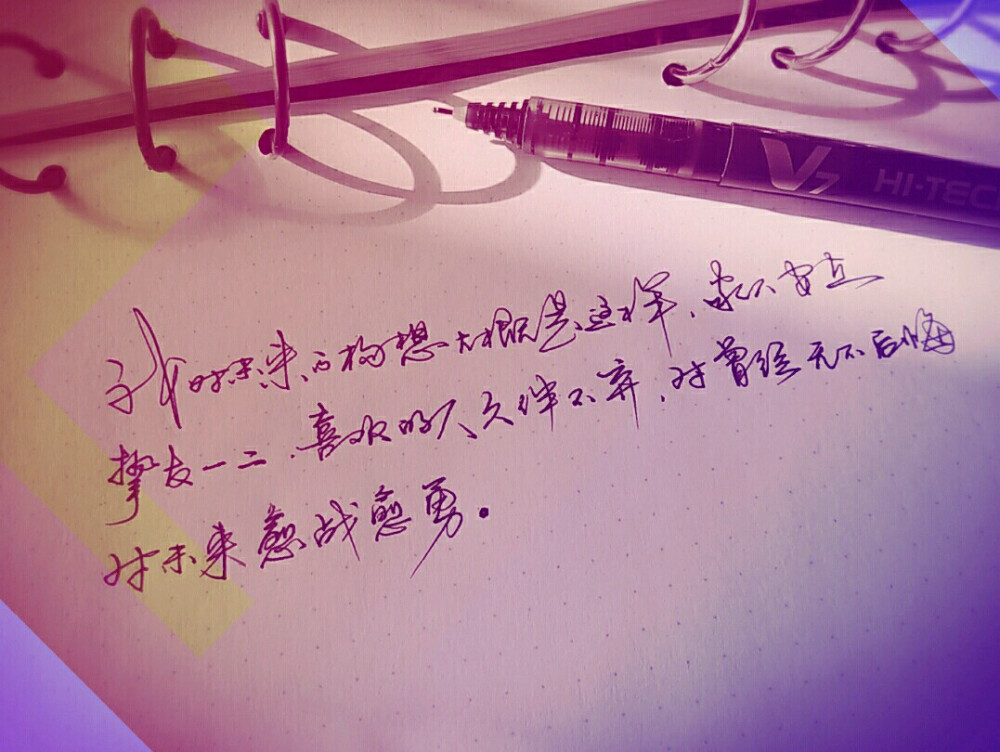 V7 HI-TEC
我对未来的构想大概是这样、家人安在
挚友一二、喜欢的人久伴不弃，对曾经无不后悔
对未来愈战愈勇。